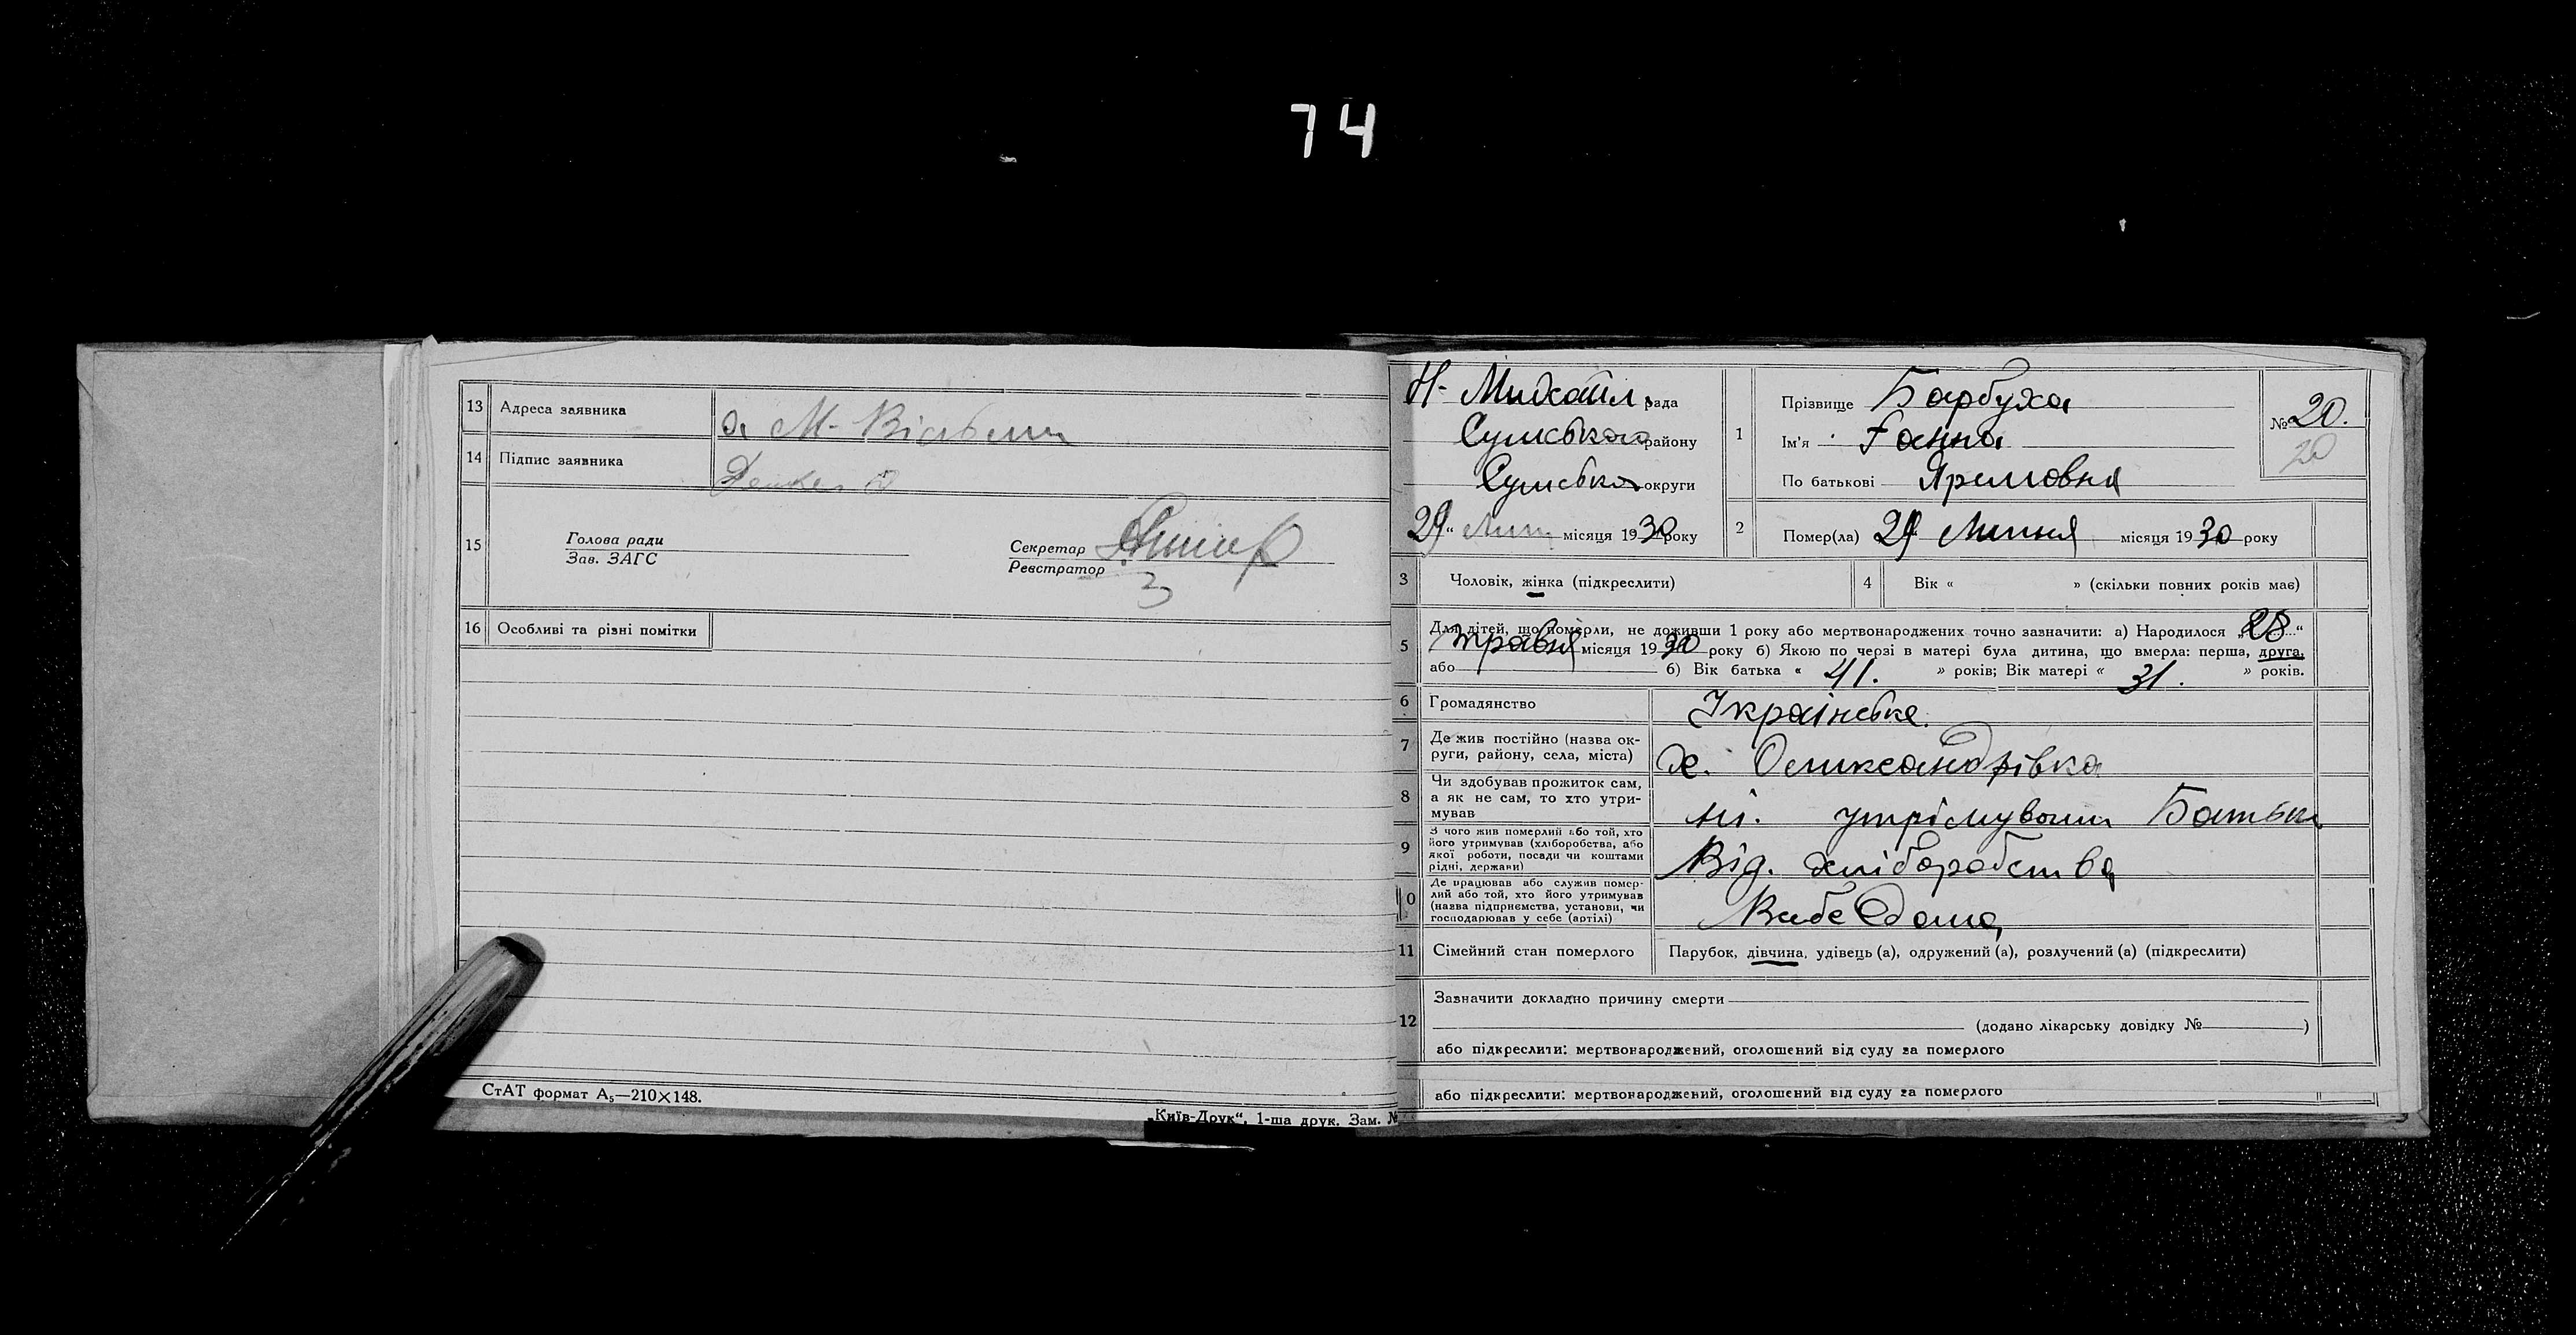 74
13 Адреса заявника
14 Підпис заявника
15 Голова ради
Зав. ЗАГС
Секретар
Реєстратор
16 Особливі та різні помітки
СтАТ формат А₅—210×148.
„Київ-Друк“, 1-ша друк. Зам. №
Н- Михайл. рада
Сумського району
Сумська округи
29 “ Лип місяця 1930 року
1 Прізвище Барбуха
Ім'я Ганна
По батькові Яремовна
№ 20.
20
2 Помер(ла) 29 Липня місяця 1930 року
3 Чоловік, жінка (підкреслити)
4 Вік « » (скільки повних років має)
5 Для дітей, що померли, не доживши 1 року або мертвонароджених точно зазначити: а) Народилося „28“
травня місяця 1930 року б) Якою по черзі в матері була дитина, що вмерла: перша, друга,
або б) Вік батька « 41. » років; Вік матері « 31. » років.
6 Громадянство Українське.
7 Де жив постійно (назва ок-
руги, району, села, міста) х. Оликсандрівка
8 Чи здобував прожиток сам,
а як не сам, то хто утри-
мував ні. утрімували Батьки
9 З чого жив померлий або той, хто
його утримував (хліборобства, або
якої роботи, посади чи коштами
рідні, держави) Від. хліборобства
0 Де працював або служив помер-
лий або той, хто його утримував
(назва підприємства, установи, чи
господарював у себе (артілі)
11 Сімейний стан померлого Парубок, дівчина, удівець (а), одружений (а), розлучений (а) (підкреслити)
12 Зазначити докладно причину смерти
(додано лікарську довідку № )
або підкреслити: мертвонароджений, оголошений від суду за померлого
або підкреслити: мертвонароджений, оголошений від суду за померлого